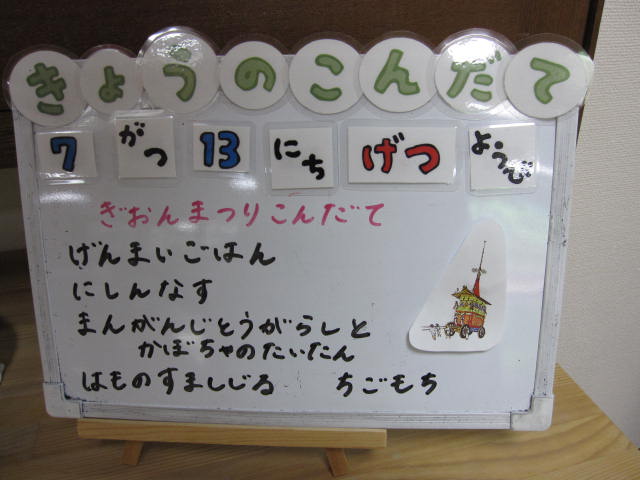 きょうのこんだて
7 がつ 13 にち げつ ようび
ぎおんまつりこんだて
げんまいごはん
にしんなす
まんがんじとうがらしと
かぼちゃのたいたん
はものすましじる ちごもち